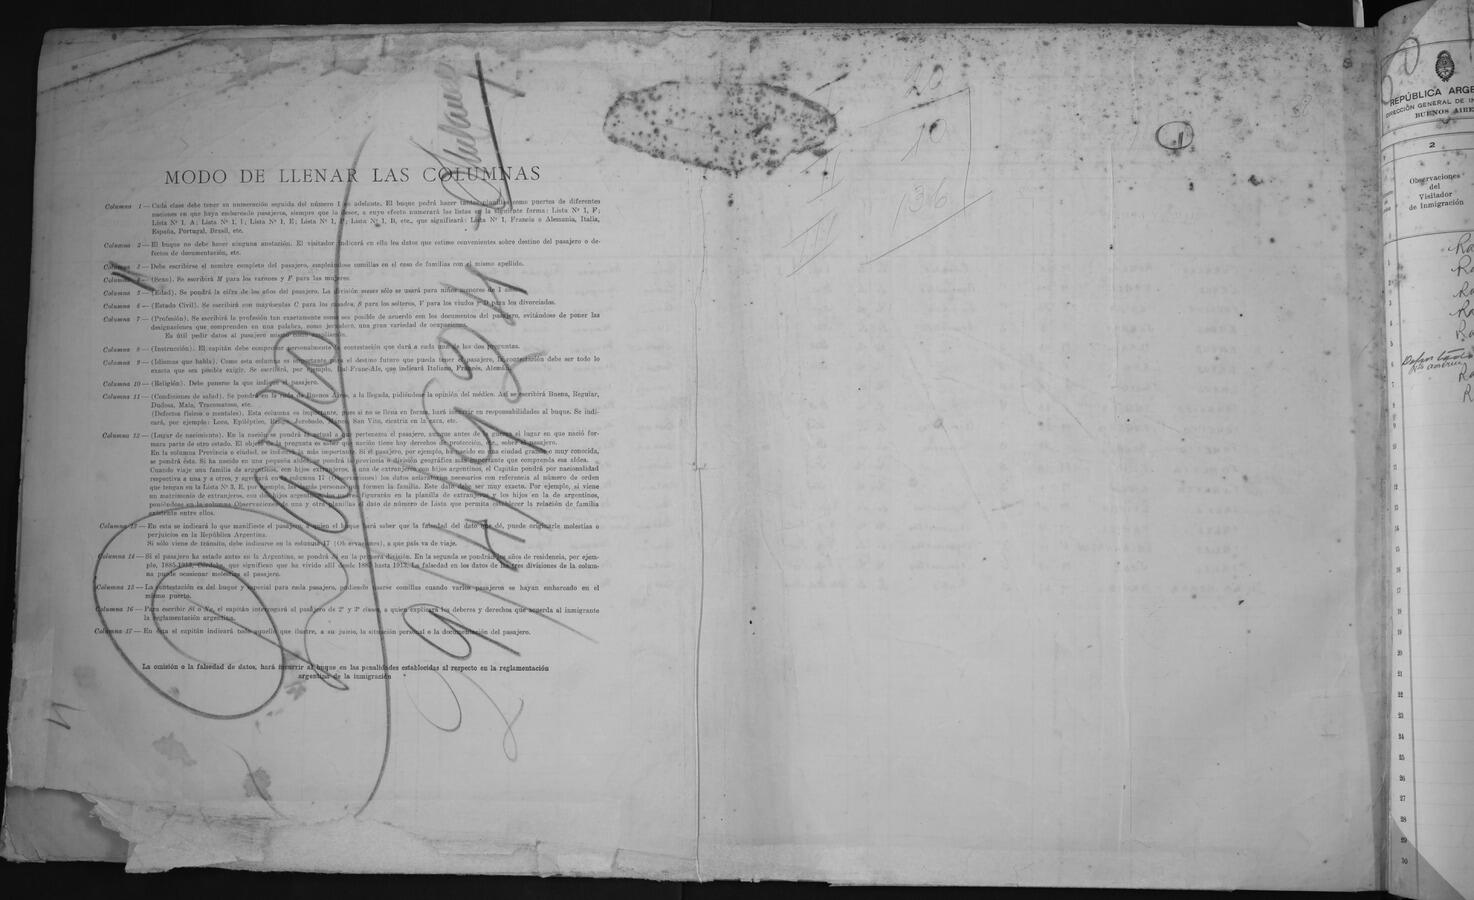 MODO DE LLENAR LAS COLUMNAS
Columna 1 — Cada clase debe tener su numeración seguida del número 1 en adelante. El buque podrá hacer tantas planillas como puertos de diferentes
naciones en que haya embarcado pasajeros, siempre que la desee, a cuyo efecto numerará las listas en la siguiente forma: Lista Nº 1, F;
Lista Nº 1, A; Lista Nº 1, I; Lista Nº 1, E; Lista Nº 1, P; Lista Nº 1, B, etc., que significará: Lista Nº 1, Francia o Alemania, Italia,
España, Portugal, Brasil, etc.
Columna 2 — El buque no debe hacer ninguna anotación. El visitador indicará en ella los datos que estime convenientes sobre destino del pasajero o de-
fectos de documentación, etc.
Columna 3 — Debe escribirse el nombre completo del pasajero, empleándose comillas en el caso de familias con el mismo apellido.
Columna 4 — (Sexo). Se escribirá M para los varones y F para las mujeres.
Columna 5 — (Edad). Se pondrá la cifra de los años del pasajero. La división meses sólo se usará para niños menores de 1 año.
Columna 6 — (Estado Civil). Se escribirá con mayúsculas C para los casados, S para los solteros, V para los viudos y D para los divorciados.
Columna 7 — (Profesión). Se escribirá la profesión tan exactamente como sea posible de acuerdo con los documentos del pasajero, evitándose de poner las
designaciones que comprenden en una palabra, como jornalero, una gran variedad de ocupaciones.
Es útil pedir datos al pasajero mismo como ampliación.
Columna 8 — (Instrucción). El capitán debe comprobar personalmente la contestación que dará a cada una de las dos preguntas.
Columna 9 — (Idiomas que habla). Como esta columna es importante para el destino futuro que pueda tener el pasajero, la contestación debe ser todo lo
exacta que sea posible exigir. Se escribirá, por ejemplo, Ital-Franc-Ale, que indicará Italiano, Francés, Alemán.
Columna 10 — (Religión). Debe ponerse la que indique el pasajero.
Columna 11 — (Condiciones de salud). Se pondrá en la rada de Buenos Aires, a la llegada, pidiéndose la opinión del médico. Así se escribirá Buena, Regular,
Dudosa, Mala, Tracomatoso, etc.
(Defectos físicos o mentales). Esta columna es importante, pues si no se llena en forma, hará incurrir en responsabilidades al buque. Se indi-
cará, por ejemplo: Loco, Epiléptico, Rengo, Jorobado, Manco, San Vito, cicatriz en la cara, etc.
Columna 12 — (Lugar de nacimiento). En la nación se pondrá la actual a que pertenezca el pasajero, aunque antes de la guerra el lugar en que nació for-
mara parte de otro estado. El objeto de la pregunta es saber qué nación tiene hoy derechos de protección, etc., sobre el pasajero.
En la columna Provincia o ciudad, se indicará la más importante. Si el pasajero, por ejemplo, ha nacido en una ciudad grande o muy conocida,
se pondrá ésta. Si ha nacido en una pequeña aldea, se pondrá la provincia o división geográfica más importante que comprenda esa aldea.
Cuando viaje una familia de argentinos, con hijos extranjeros, o una de extranjeros con hijos argentinos, el Capitán pondrá por nacionalidad
respectiva a una y a otros, y agregará en la columna 17 (Observaciones) los datos aclaratorios necesarios con referencia al número de orden
que tengan en la Lista Nº 3, E, por ejemplo, las demás personas que formen la familia. Este dato debe ser muy exacto. Por ejemplo, si viene
un matrimonio de extranjeros, con dos hijos argentinos, los padres figurarán en la planilla de extranjeros y los hijos en la de argentinos,
poniéndose en la columna Observaciones de una y otra planillas el dato de número de Lista que permita establecer la relación de familia
existente entre ellos.
Columna 13 — En esta se indicará lo que manifieste el pasajero, a quien el buque hará saber que la falsedad del dato que dé, puede originarle molestias o
perjuicios en la República Argentina.
Si sólo viene de tránsito, debe indicarse en la columna 17 (Observaciones), a que país va de viaje.
Columna 14 — Si el pasajero ha estado antes en la Argentina, se pondrá Sí en la primera división. En la segunda se pondrán los años de residencia, por ejem-
plo, 1885-1913, Córdoba, que significan que ha vivido allí desde 1885 hasta 1913. La falsedad en los datos de las tres divisiones de la colum-
na puede ocasionar molestias al pasajero.
Columna 15 — La contestación es del buque y especial para cada pasajero, pudiendo usarse comillas cuando varios pasajeros se hayan embarcado en el
mismo puerto.
Columna 16 — Para escribir Sí o No, el capitán interrogará al pasajero de 2ª y 3ª clases, a quien explicará los deberes y derechos que acuerda al inmigrante
la reglamentación argentina.
Columna 17 — En ésta el capitán indicará todo aquello que ilustre, a su juicio, la situación personal o la documentación del pasajero.
La omisión o la falsedad de datos, hará incurrir al buque en las penalidades establecidas al respecto en la reglamentación
argentina de la inmigración
I 20
II 10
III 136
REPÚBLICA ARGE
DIRECCIÓN GENERAL DE I
BUENOS AIRE
2
Observaciones
del
Visitador
de Inmigración